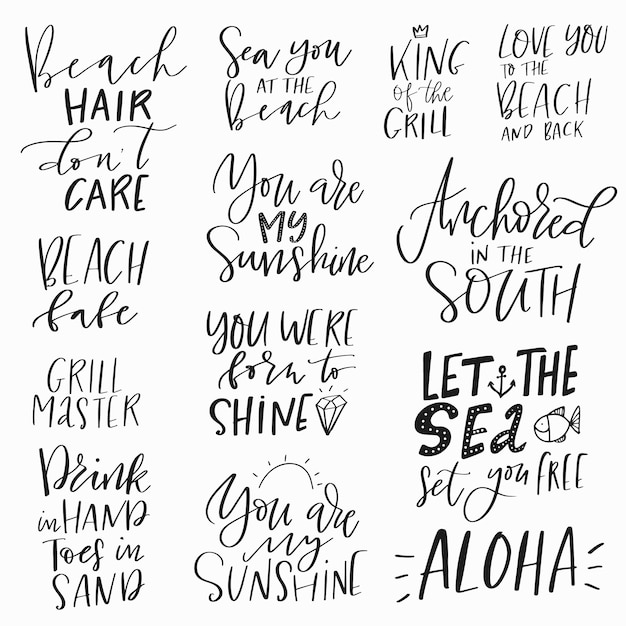 Beach
HAIR
don't
CARE
BEACH
babe
GRILL
MASTER
Drink
in HAND
Toes in
SAND
Sea you
AT THE
Beach
You are
MY
Sunshine
YOU WERE
born to
SHINE
You are
my
SUNSHINE
KING
of the
GRILL
LOVE YOU
TO THE
BEACH
AND BACK
Anchored
IN THE
SOUTH
LET THE
SEa
set you FREE
ALOHA